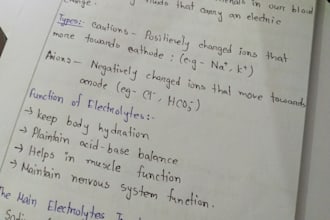 in our blood
that carry an electric
charge.
Types:- Cautions - Positively changed ions that
move towards cathode: (e.g - Na⁺, K⁺)
Anions - Negatively changed ions that move towards
anode (eg- Cl⁻, HCO₃⁻)
Function of Electrolytes:-
→ keep body hydration
→ Maintain acid-base balance
→ Helps in muscle function
→ Maintain nervous system function.
The Main Electrolytes